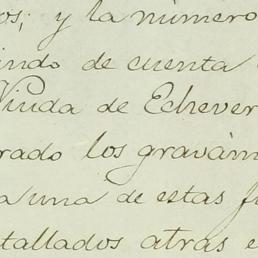 os; y la número
indo de cuenta
Viuda de Echever
rado los graváme
a una de estas fi
tallados atras e